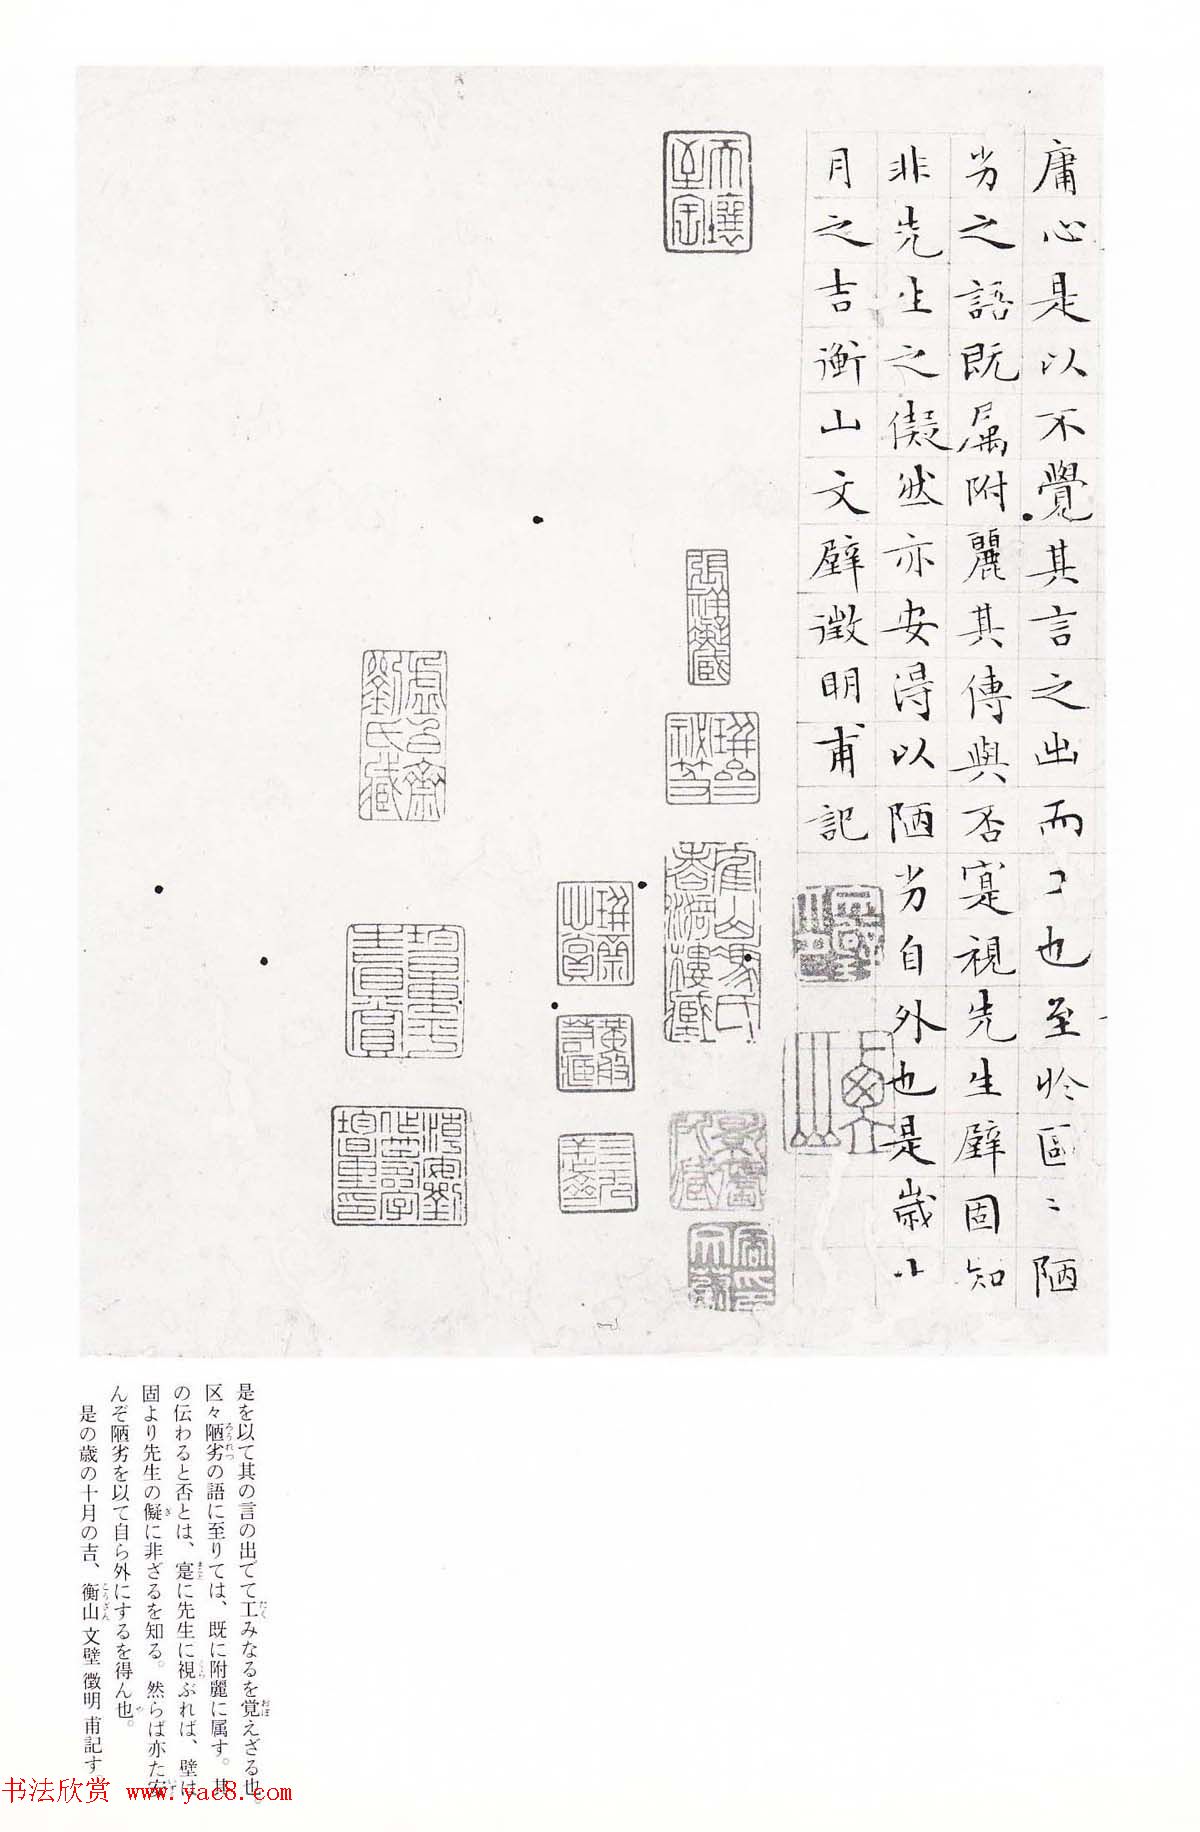 庸心是以不覺其言之出而工也至於區〻陋
劣之語既属附麗其傳與否寔視先生壁固知
非先生之儗然亦安得以陋劣自外也是歳十
月之吉衡山文壁徵明甫記
天壤至寶
張祥凝藏
是を以て其の言の出でて工みなるを覚えざる也。
区々陋劣の語に至りては、既に附麗に属す。其
の伝わると否とは、寔に先生に視ぶれば、壁は
固より先生の儗に非ざるを知る。然らば亦た安
んぞ陋劣を以て自ら外にするを得ん也。
是の歳の十月の吉、衡山文壁徴明甫記す。
书法欣赏 www.yac8.com